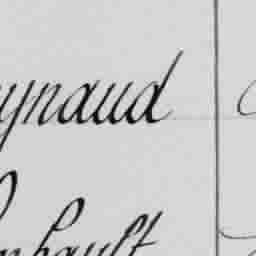 ynaud
nhault